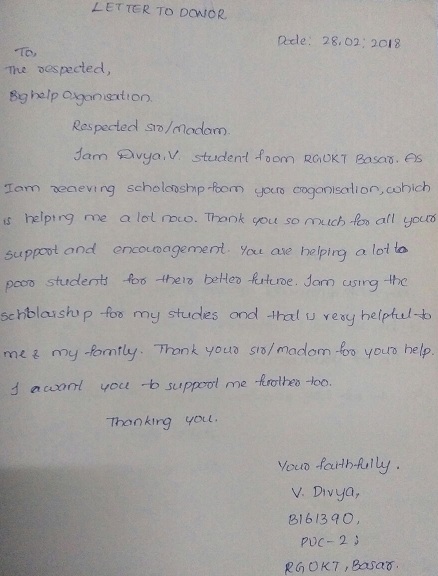 LETTER TO DONOR
Date: 28.02.2018
To,
The respected,
Bighelp Organisation.
Respected sir/madam
Iam Divya.V. student from RGUKT Basar. As
Iam recieving scholarship from your organisation, which
is helping me a lot now. Thank you so much for all your
support and encouragement. You are helping a lot to
poor students for their better future. Iam using the
schblarship for my studies and that is very helpful to
me & my family. Thank your sir/madam for your help.
I awant you to support me further too.
Thanking you.
Your faithfully.
V. Divya,
B161390,
PUC-2;
RGUKT, Basar.